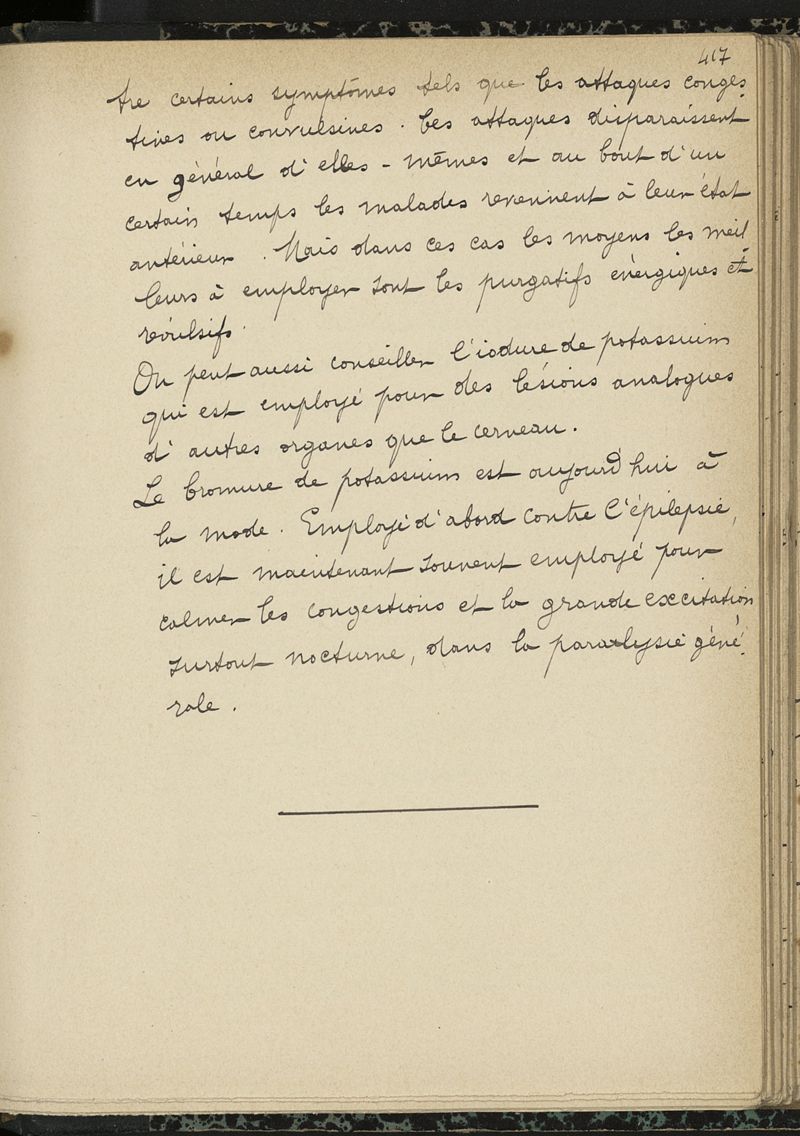 417
tre certains symptômes tels que les attaques conges
tives ou convulsives. Ces attaques disparaissent
en général d'elles-mêmes et au bout d'un
certain temps les malades reviennent à leur état
antérieur. Mais dans ces cas les moyens les meil-
leurs à employer sont les purgatifs énergiques et
révulsifs.
On peut aussi conseiller l'iodure de potassium
qui est employé pour des lésions analogues
d'autres organes que le cerveau.
Le bromure de potassium est aujourd'hui à
la mode. Employé d'abord contre l'épilepsie,
il est maintenant souvent employé pour
calmer les congestions et la grande excitation
surtout nocturne, dans la paralysie géné-
rale.